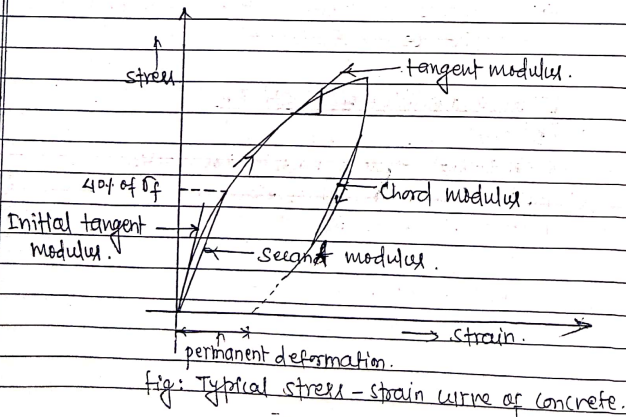 stress
tangent modulus.
40% of σf
Chord modulus.
Initial tangent
modulus.
Secant modulus.
→ strain.
permanent deformation.
fig: Typical stress - strain curve of concrete.